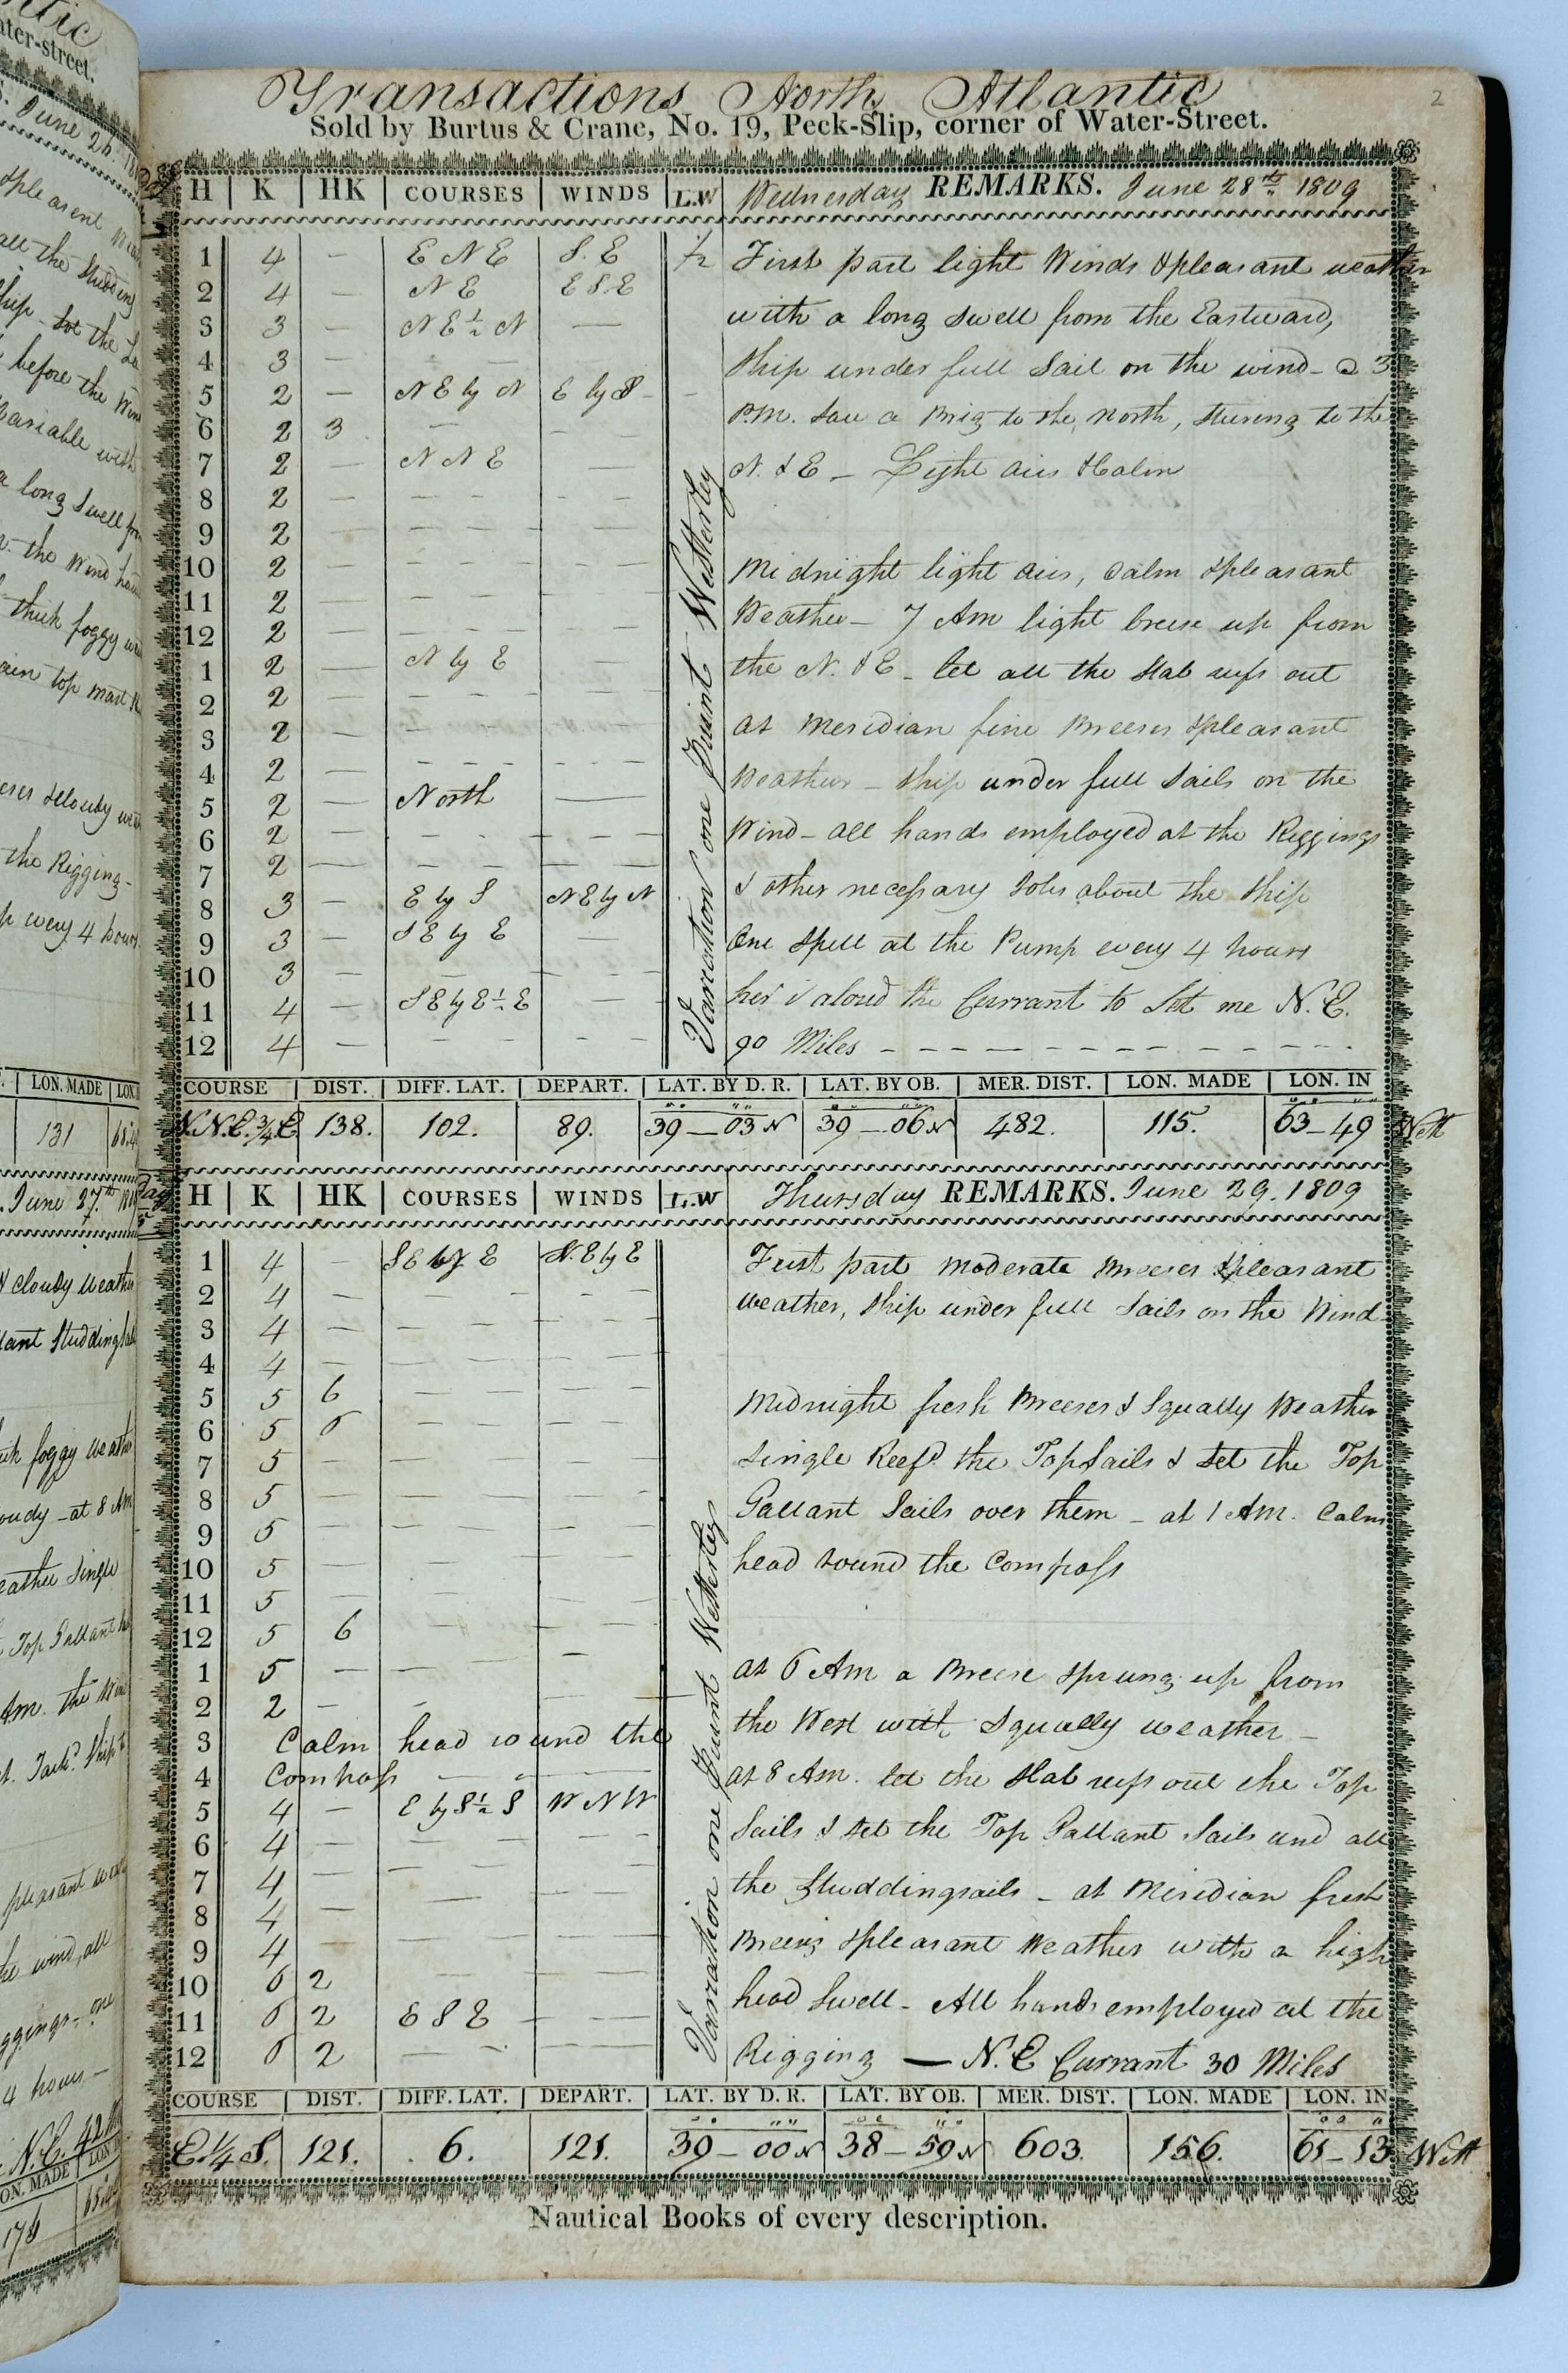 Transactions North Atlantic
2
Sold by Burtus & Crane, No. 19, Peck-Slip, corner of Water-Street.
H | K | HK | COURSES | WINDS | L.W | Wednesday REMARKS. June 28th 1809
1 4 — E N E S. E ½ First part light Winds & pleasant weather
2 4 — N E E S. E
3 3 — N E ½ N — with a long swell from the Eastward,
4 3 — — — Ship under full Sail on the wind - @ 3
5 2 — N E by N E by S - -
6 2 3 — — — P.M. Saw a Brig to the North, Stering to the
7 2 — N N E — N. & E - Light airs & Calm
8 2 — — — — —
9 2 — — — — —
10 2 — — — — — Midnight light airs, Calm & pleasant
11 2 — — — — — Weather - 7 Am light breese up from
12 2 — — — — —
1 2 — N by E — the N. & E - let all the Slab reefs out
2 2 — — — — —
3 2 — — — — — at Meridian fine Breeses & pleasant
4 2 — — — — — Weather - Ship under full Sails on the
5 2 — North —
6 2 — — — — — Wind - all hands employed at the Riggings
7 2 — — — — —
8 3 — E by S N E by N & other necessary Jobs about the Ship
9 3 — S E by E — One Spell at the Pump every 4 hours
10 3 — — — —
11 4 — S E by E ½ E — the Currant to Set me N. E.
12 4 — — — — — 90 Miles - - - - - - - - - - -
Variation one Puint Westerley
COURSE | DIST. | DIFF. LAT. | DEPART. | LAT. BY D. R. | LAT. BY OB. | MER. DIST. | LON. MADE | LON. IN
N.N.E. ¾ E. 138. 102. 89. 39 — 03 N 39 — 06 N 482. 115. 63 — 49 West
H | K | HK | COURSES | WINDS | L.W | Thursday REMARKS. June 29. 1809
1 4 — S E by E N. E by E First part Moderate Breeses & pleasant
2 4 — — — — — weather, Ship under full Sails on the Wind -
3 4 — — — — —
4 4 — — — — —
5 5 6 — — — — Midnight fresh Breeses & Squally Weather
6 5 6 — — — —
7 5 — — — — — Single Reefd. the Top Sails & Set the Top
8 5 — — — — — Gallant Sails over them - at 1 Am. Calm
9 5 — — — — —
10 5 — — — — — head round the Compass
11 5 — — — — —
12 5 6 — — —
1 5 — — — — at 6 Am a Breese sprung up from
2 2 — — — —
3 Calm head round the the West with Squally weather -
4 Compass — — — at 8 Am. let the Slab reefs out the Top
5 4 — E by S ½ S W N W
6 4 — — — — — Sails & Set the Top Gallant Sails and all
7 4 — — — — — the Studdingsails - at Meridian fresh
8 4 — — — — —
9 4 — — — — — Breeses & pleasant Weather with a high
10 6 2 — — — —
11 6 2 E S E — — head Swell - All hands employed at the
12 6 2 — — — — Rigging — N. E Currant 30 Miles
Variation one Puint Westerley
COURSE | DIST. | DIFF. LAT. | DEPART. | LAT. BY D. R. | LAT. BY OB. | MER. DIST. | LON. MADE | LON. IN
E. ¼ S. 121. 6. 121. 39 — 00 N 38 — 59 N 603. 156. 61 — 13 West
Nautical Books of every description.